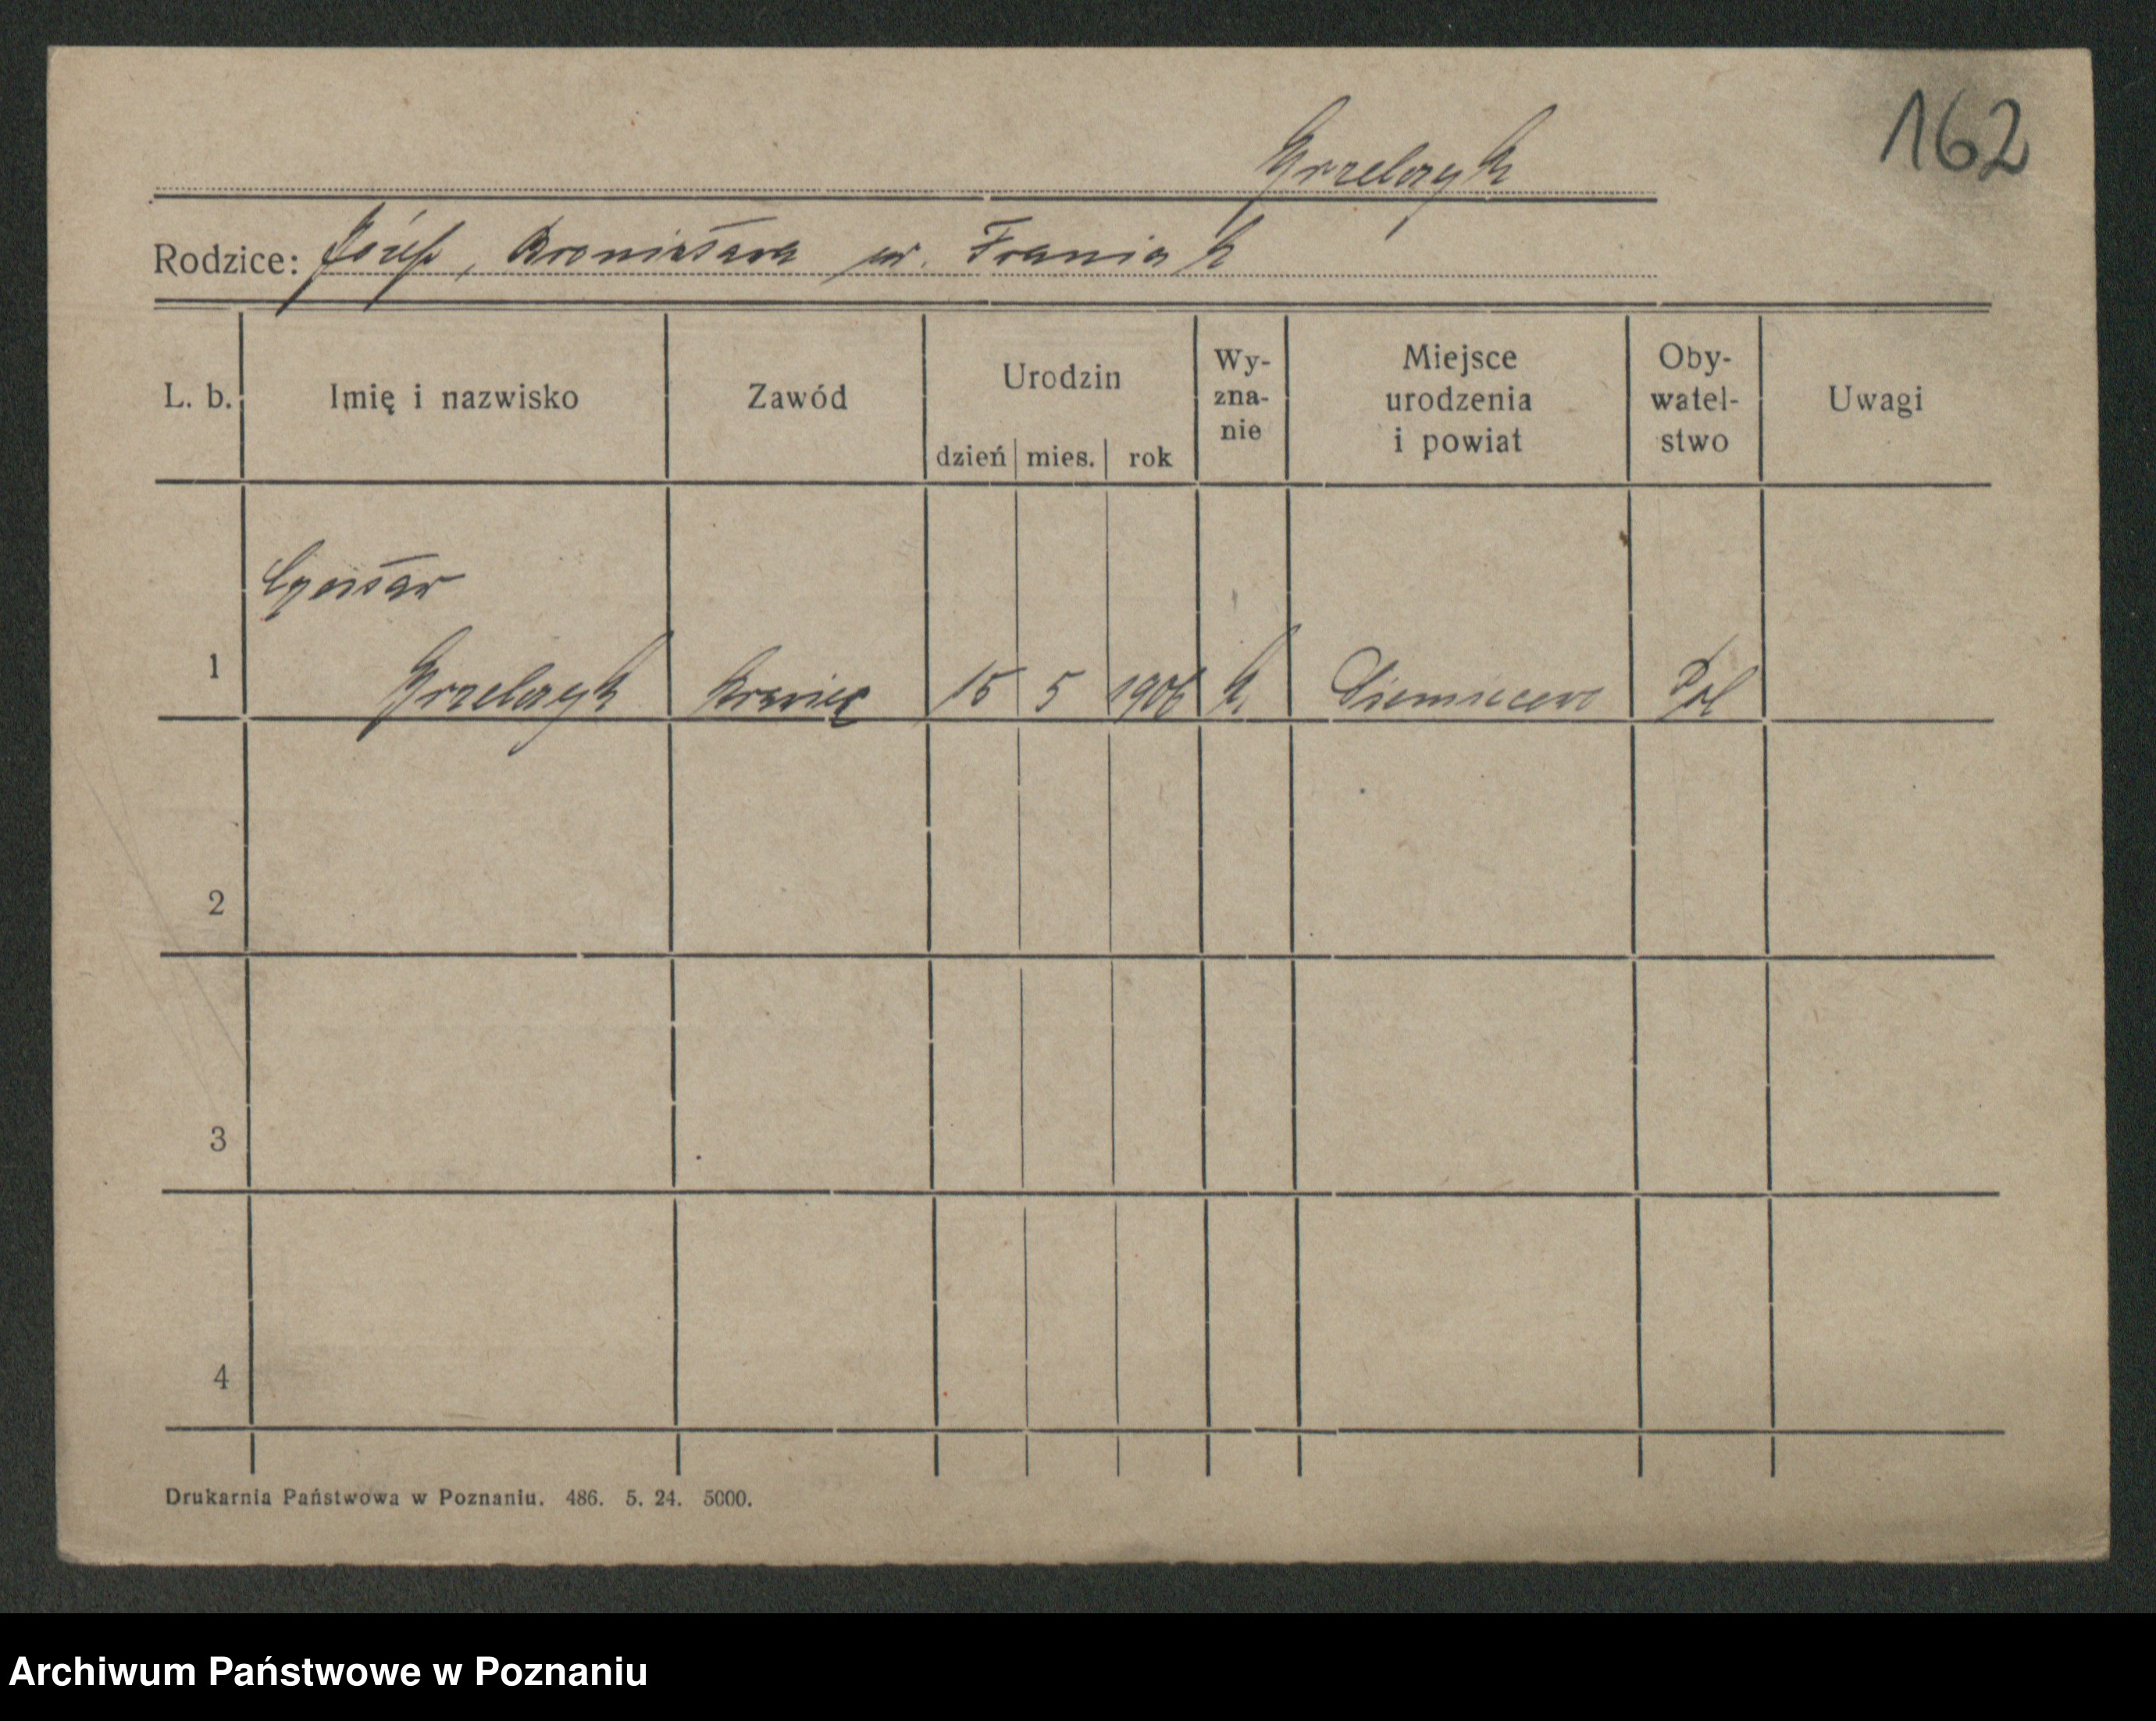 162
Grzelczyk
Rodzice: Józef, Bronisława ur. Franiak
L. b.
Imię i nazwisko
Zawód
Urodzin
dzień mies. rok
Wy-
zna-
nie
Miejsce
urodzenia
i powiat
Oby-
watel-
stwo
Uwagi
Czesław
1 Grzelczyk krawiec 15 5 1906 k. Siemiecewo Pol
2
3
4
Drukarnia Państwowa w Poznaniu. 486. 5. 24. 5000.
Archiwum Państwowe w Poznaniu